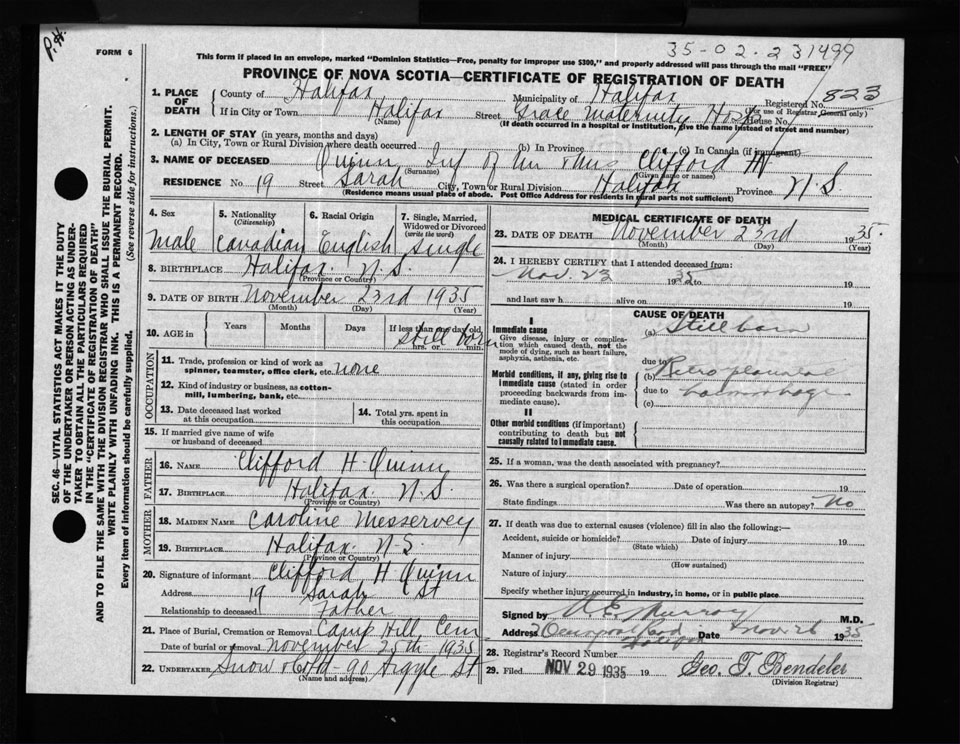 P.H.
FORM 6
35-02-231499
This form if placed in an envelope, marked "Dominion Statistics—Free, penalty for improper use $300," and properly addressed will pass through the mail "FREE"
PROVINCE OF NOVA SCOTIA—CERTIFICATE OF REGISTRATION OF DEATH
1. PLACE OF DEATH
County of Halifax Municipality of Halifax Registered No. 823
(For use of Registrar General only)
If in City or Town Halifax Street Grace Maternity Hosp House No.
(Name) (If death occurred in a hospital or institution, give the name instead of street and number)
2. LENGTH OF STAY (in years, months and days)
(a) In City, Town or Rural Division where death occurred (b) In Province (c) In Canada (if immigrant)
3. NAME OF DECEASED Quinn Inf of Mr & Mrs Clifford H
(Surname) (Given name or names)
RESIDENCE No 19 Street Sarah City, Town or Rural Division Halifax Province N.S.
(Residence means usual place of abode. Post Office Address for residents in rural parts not sufficient)
4. Sex 5. Nationality (Citizenship) 6. Racial Origin 7. Single, Married, Widowed or Divorced (write the word)
Male Canadian English Single
8. BIRTHPLACE Halifax N.S.
(Province or Country)
9. DATE OF BIRTH November 23rd 1935
(Month) (Day) (Year)
10. AGE in Years Months Days If less than one day old
still born
hrs. or min.
OCCUPATION
11. Trade, profession or kind of work as spinner, teamster, office clerk, etc. none
12. Kind of industry or business, as cotton-mill, lumbering, bank, etc.
13. Date deceased last worked at this occupation
14. Total yrs. spent in this occupation
15. If married give name of wife or husband of deceased
FATHER
16. NAME Clifford H. Quinn
17. BIRTHPLACE Halifax N.S.
(Province or Country)
MOTHER
18. MAIDEN NAME Caroline Messervey
19. BIRTHPLACE Halifax N.S.
(Province or Country)
20. Signature of informant Clifford H Quinn
Address 19 Sarah St
Relationship to deceased Father
21. Place of Burial, Cremation or Removal Camp Hill Cem
Date of burial or removal November 25th 1935
22. UNDERTAKER Snow & Co Ltd - 90 Argyle St
(Name and address)
MEDICAL CERTIFICATE OF DEATH
23. DATE OF DEATH November 23rd 1935.
(Month) (Day) (Year)
24. I HEREBY CERTIFY that I attended deceased from:
Nov. 23 1935 to 19
and last saw h alive on 19
CAUSE OF DEATH
I
Immediate cause
Give disease, injury or complication which caused death, not the mode of dying, such as heart failure, asphyxia, asthenia, etc.
(a) Still born
due to
Morbid conditions, if any, giving rise to immediate cause (stated in order proceeding backwards from immediate cause).
(b) Retroplacental
due to haemorrhage
(c)
II
Other morbid conditions (if important) contributing to death but not causally related to immediate cause.
25. If a woman, was the death associated with pregnancy?
26. Was there a surgical operation? Date of operation 19
State findings Was there an autopsy? No
27. If death was due to external causes (violence) fill in also the following:—
Accident, suicide or homicide? Date of injury 19
(State which)
Manner of injury
(How sustained)
Nature of injury
Specify whether injury occurred in industry, in home, or in public place
Signed by Murray M.D.
Address Halifax Date Nov 26 1935
28. Registrar's Record Number
29. Filed NOV 29 1935 19 Geo. T. Bendeler
(Division Registrar)
SEC. 46—VITAL STATISTICS ACT MAKES IT THE DUTY OF THE UNDERTAKER OR PERSON ACTING AS UNDERTAKER TO OBTAIN ALL THE PARTICULARS REQUIRED IN THE "CERTIFICATE OF REGISTRATION OF DEATH" AND TO FILE THE SAME WITH THE DIVISION REGISTRAR WHO SHALL ISSUE THE BURIAL PERMIT.
WRITE PLAINLY WITH UNFADING INK. THIS IS A PERMANENT RECORD.
Every item of information should be carefully supplied. (See reverse side for instructions.)